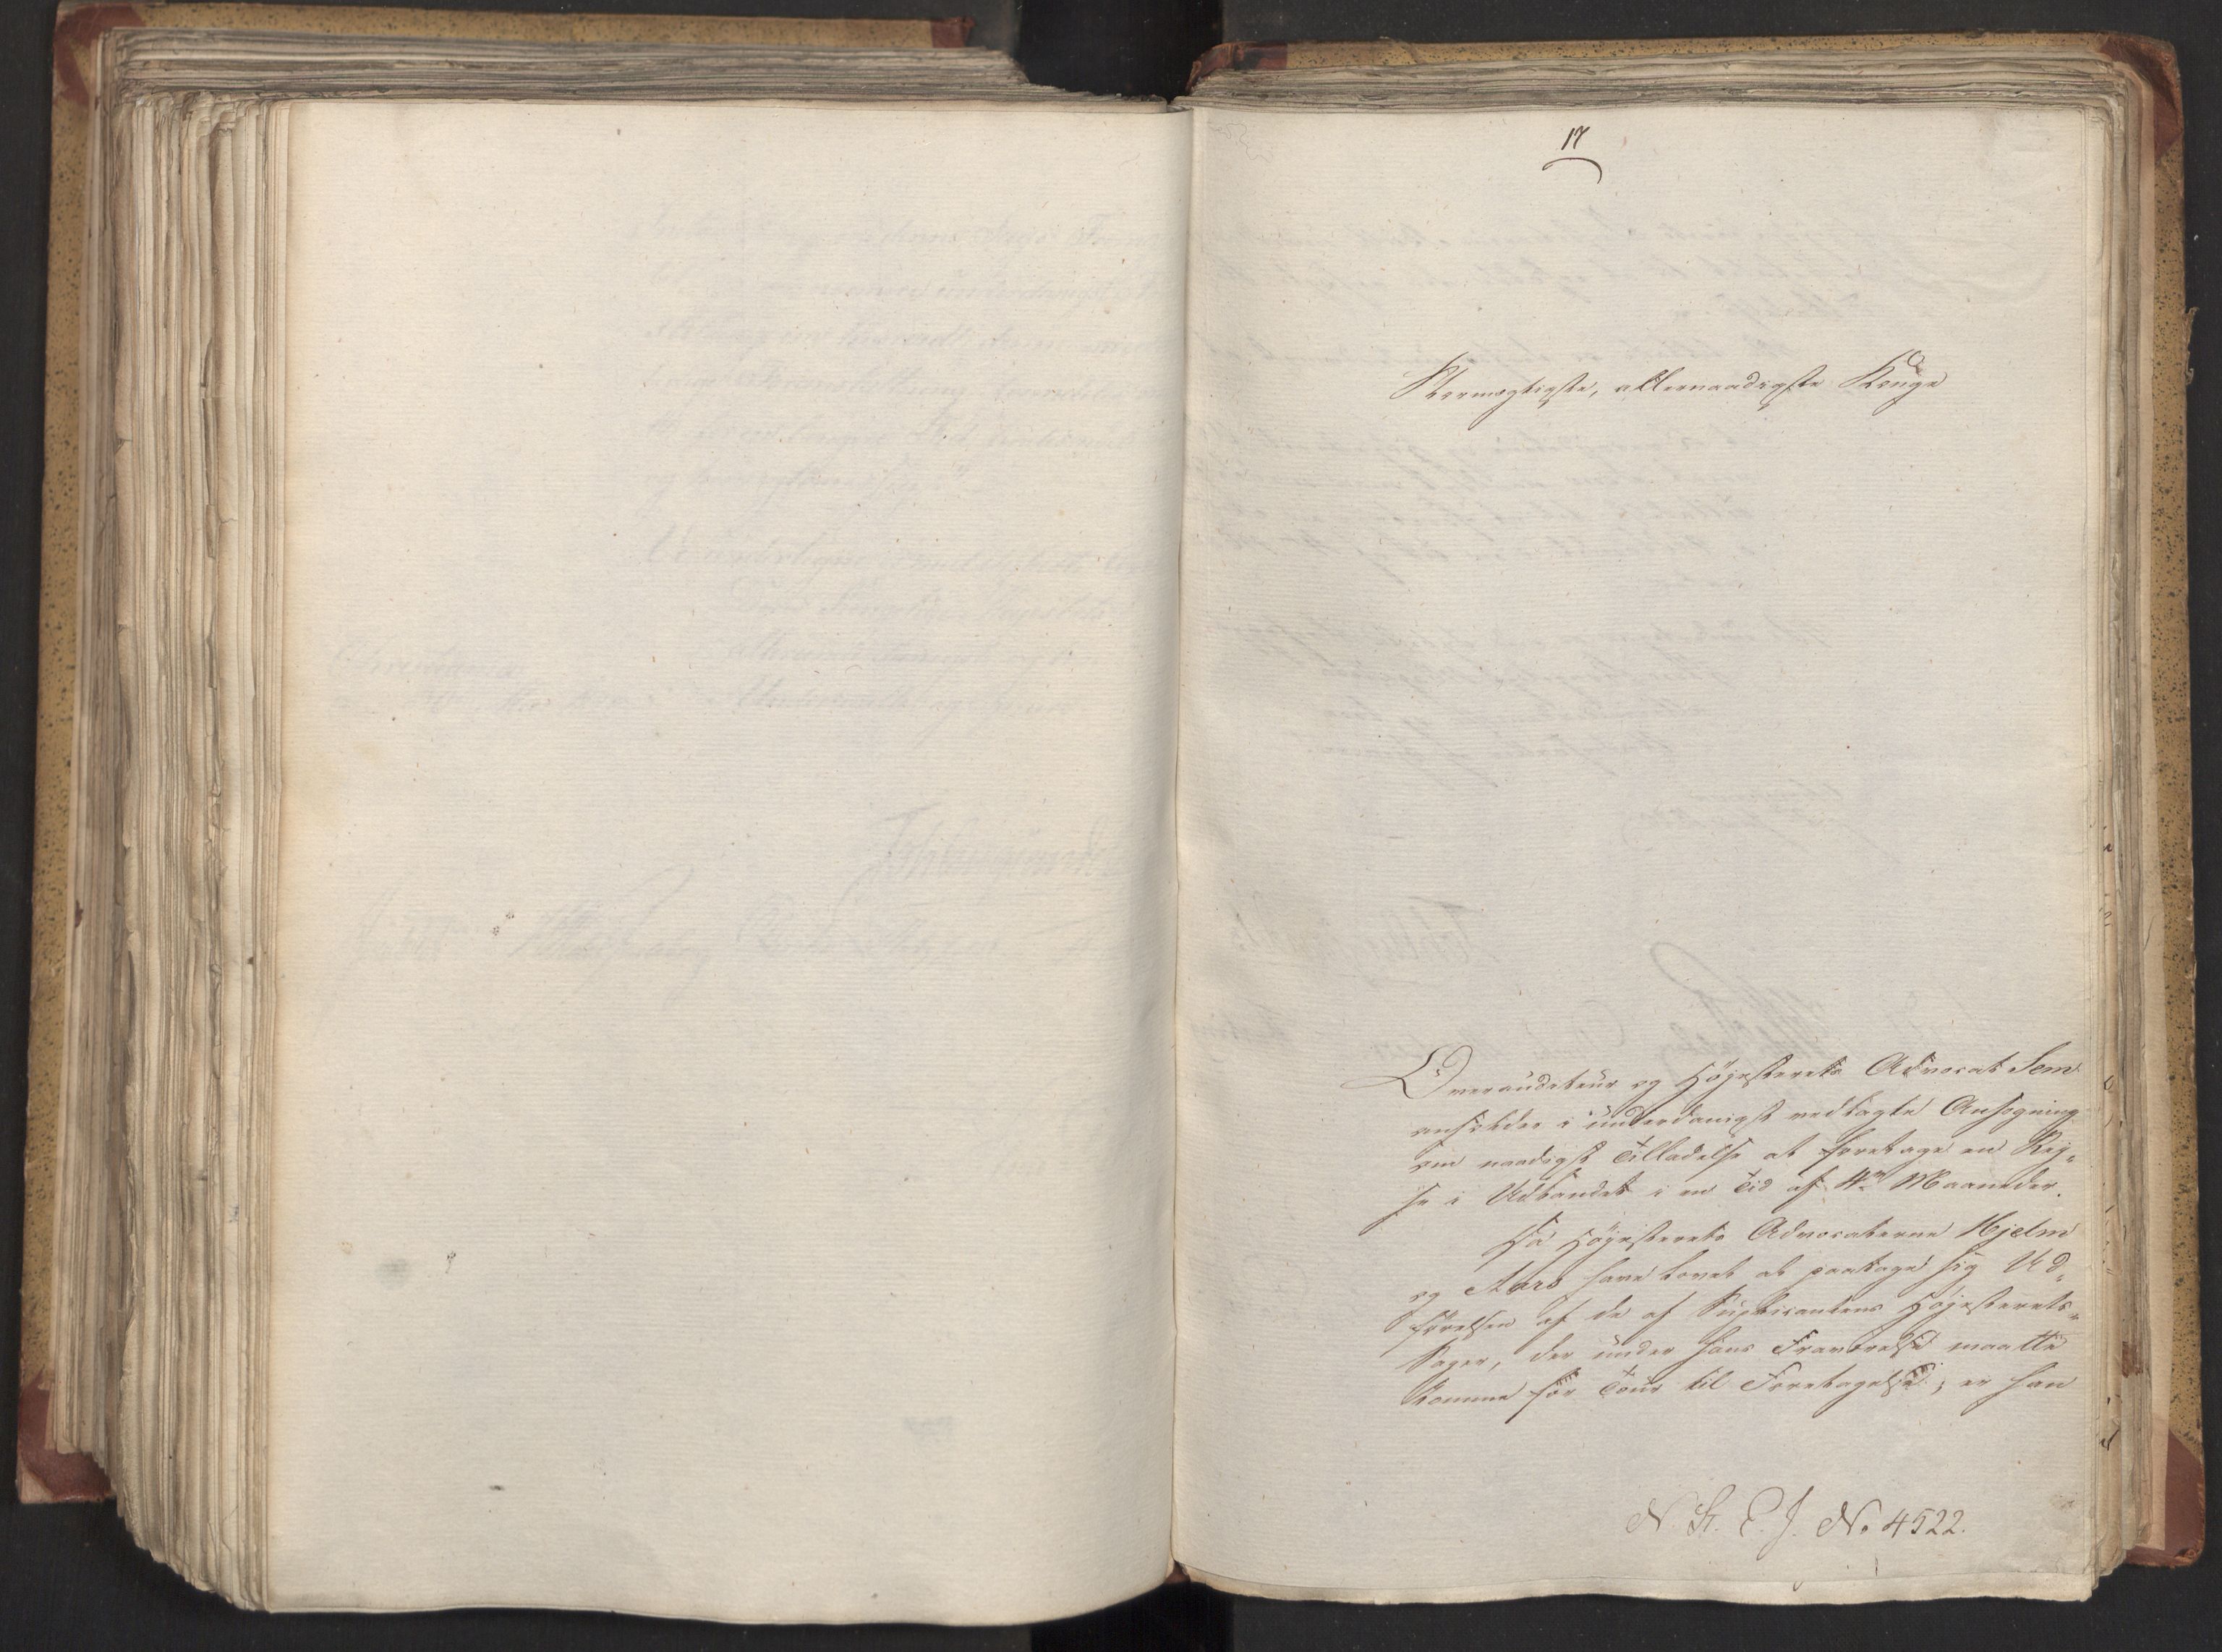 17
Stormægtigste, allernaadigste Konge
Overauditeur og Høiesterets Advocat Sem
anholder i underdanigst vedlagte Ansøgning
om naadigst Tilladelse at foretage en Rej„
se i Udlandet i en Tid af 4re Maaneder.
Da Høiesterets Advocaterne Hjelm
og Aars have lovet at paatage sig Ud„
førelsen af de af Supplicantens Høiesterets„
Sager, der under hans Fraværelse maatte
komme for Tour til Foretagelse; er han
N. St. E. J. No 4522.